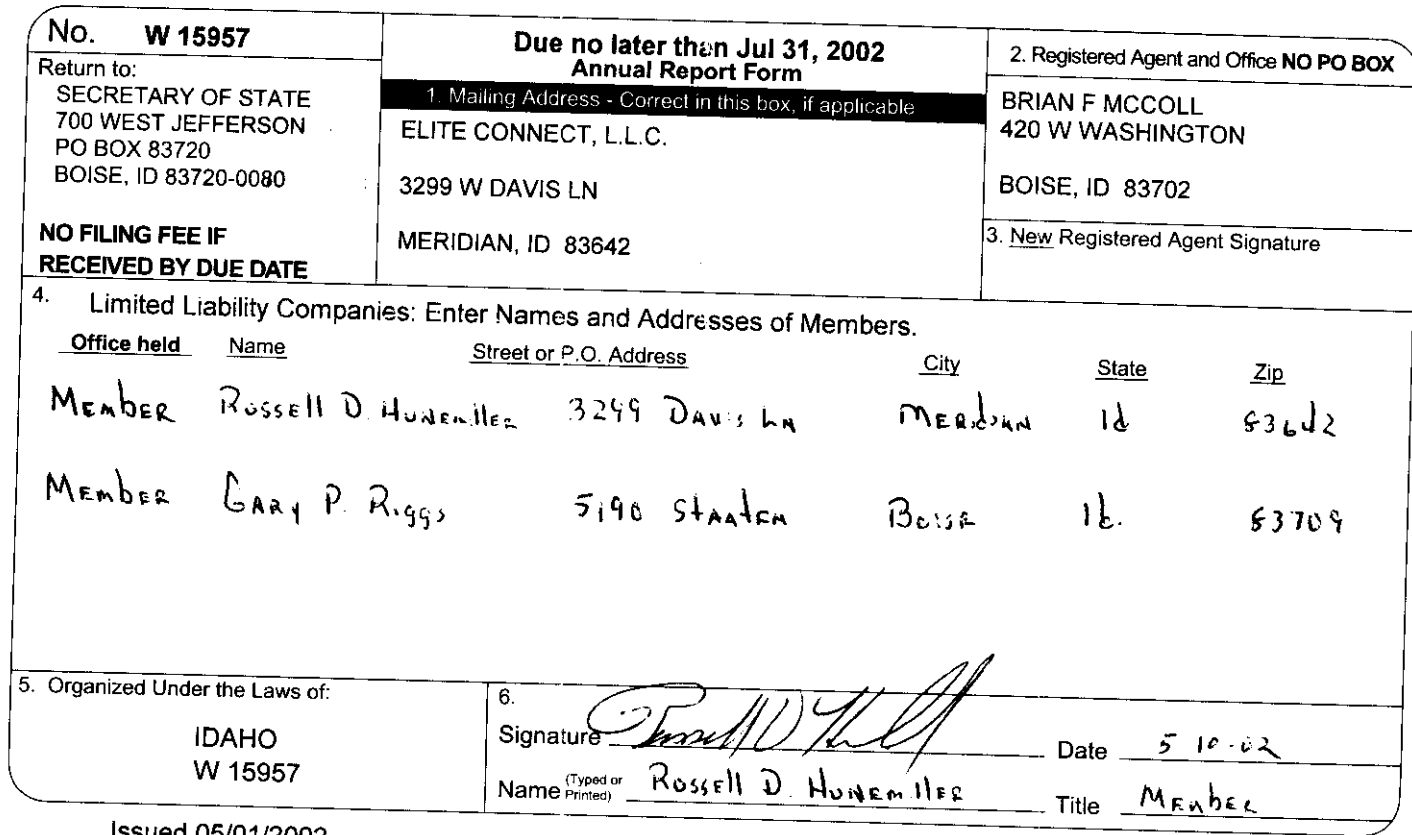 No. W 15957
Return to:
SECRETARY OF STATE
700 WEST JEFFERSON
PO BOX 83720
BOISE, ID 83720-0080
NO FILING FEE IF
RECEIVED BY DUE DATE
Due no later than Jul 31, 2002
Annual Report Form
1. Mailing Address - Correct in this box, if applicable
ELITE CONNECT, L.L.C.
3299 W DAVIS LN
MERIDIAN, ID 83642
2. Registered Agent and Office NO PO BOX
BRIAN F MCCOLL
420 W WASHINGTON
BOISE, ID 83702
3. New Registered Agent Signature
4. Limited Liability Companies: Enter Names and Addresses of Members.
Office held Name Street or P.O. Address City State Zip
Member Russell D. Hunemiller 3299 Davis Ln Meridian Id 83642
Member Gary P. Riggs 5190 Staaten Boise Id. 83709
5. Organized Under the Laws of:
IDAHO
W 15957
6.
Signature Date 5 10-02
Name (Typed or Printed) Russell D. Hunemiller Title Member
Issued 05/01/2002